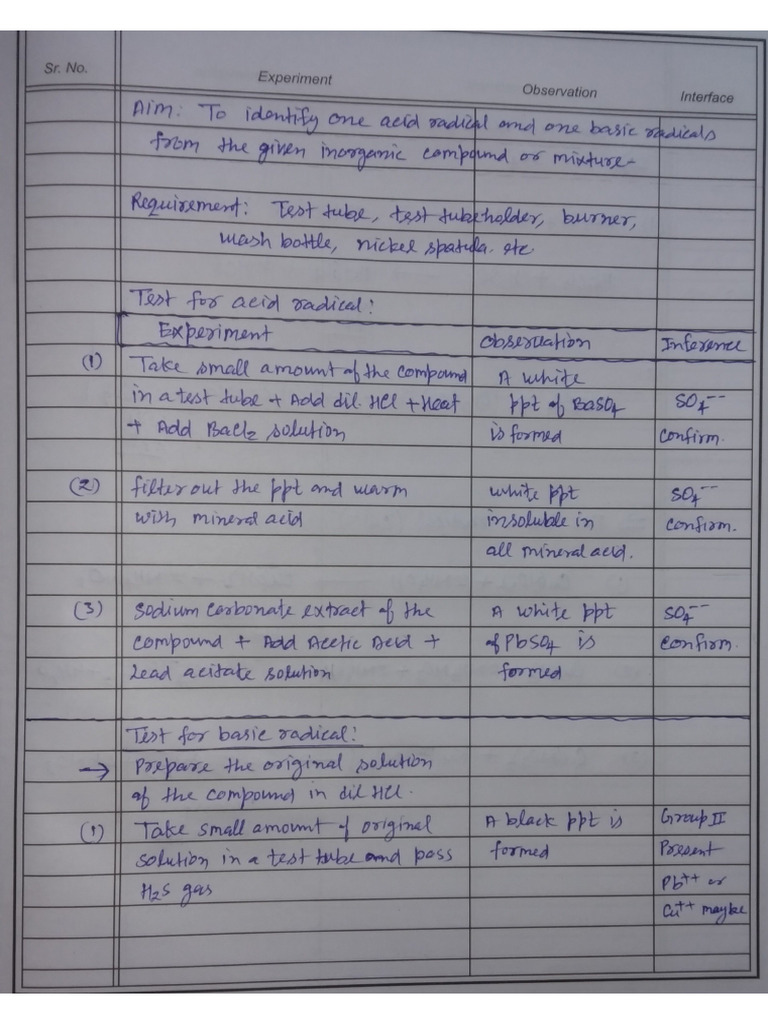 Sr. No. Experiment Observation Interface
Aim: To identify one acid radical and one basic radicals
from the given inorganic compound or mixture-
Requirement: Test tube, test tubeholder, burner,
wash bottle, nickel spatula. etc
Test for acid radical:
Experiment Observation Inference
(1) Take small amount of the compound A white
in a test tube + Add dil. HCl + Heat ppt of BaSO4 SO4--
+ Add BaCl2 solution is formed Confirm.
(2) filter out the ppt and warm white ppt SO4--
with mineral acid insoluble in Confirm.
all mineral acid.
(3) Sodium Carbonate extract of the A white ppt SO4--
Compound + Add Acetic Acid + of PbSO4 is Confirm.
Lead acitate solution formed
Test for basic radical:
→ Prepare the original solution
of the compound in dil HCl.
(1) Take small amount of original A black ppt is Group II
solution in a test tube and pass formed Present
H2S gas Pb++ or
Cu++ maybe